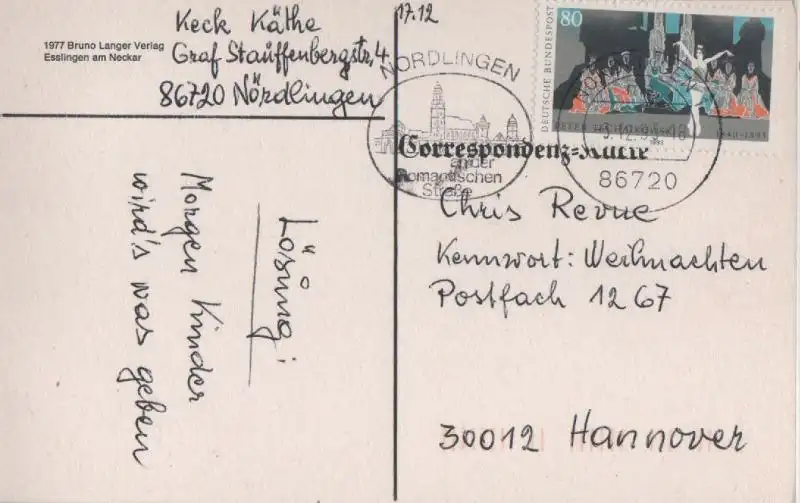 Keck Käthe
Graf Stauffenbergstr. 4
86720 Nördlingen
1977 Bruno Langer Verlag
Esslingen am Neckar
17.12
NÖRDLINGEN
an der
Romantischen
Straße
80
DEUTSCHE BUNDESPOST
1840-1893
86720
Correspondenz-Karte
Chris Revue
Kennwort: Weihnachten
Postfach 1267
30012 Hannover
Lösung:
Morgen Kinder
wird's was geben